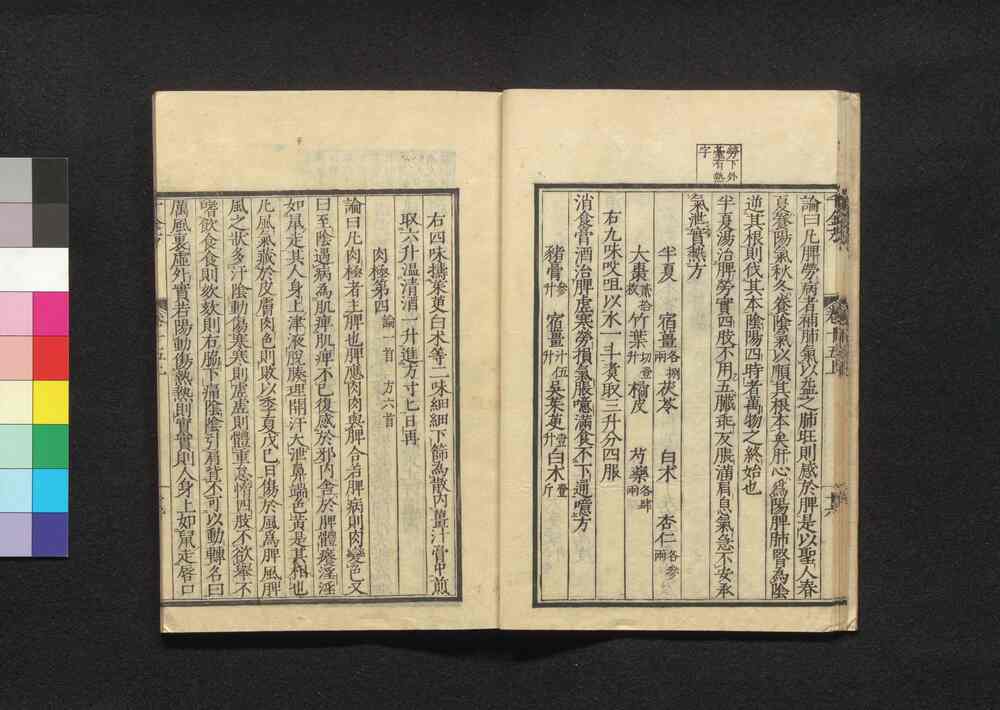 勞下外
臺有熱
字
論曰凡脾勞病者補肺氣以益之肺旺則感於脾是以聖人春
夏養陽氣秋冬養陰氣以順其根本矣肝心為陽脾肺腎為陰
逆其根則伐其本陰陽四時者萬物之終始也
半夏湯治脾勞實四肢不用五臟乖反脹滿肩息氣急不安承
氣泄實熱方
半夏 宿薑各捌兩 茯苓 白朮 杏仁各參兩
大棗貳拾枚 竹葉切壹升 橘皮 芍藥各肆兩
右九味㕮咀以水一斗煮取三升分四服
消食膏酒治脾虛寒勞損氣脹噫滿食不下通噫方
豬膏參升 宿薑汁伍升 吳茱萸壹升 白朮壹斤
右四味擣茱萸白朮等二味細細下篩為散內薑汁膏中煎
取六升温清酒一升進方寸匕日再
肉極第四 論一首 方六首
論曰凡肉極者主脾也脾應肉肉與脾合若脾病則肉變色又
曰至陰遇病為肌痺肌痺不已復感於邪內舍於脾體癢淫淫
如鼠走其人身上津液脫腠理開汗大泄鼻端色黃是其相也
凡風氣藏於皮膚肉色則敗以季夏戊己日傷於風為脾風脾
風之狀多汗陰動傷寒寒則虛虛則體重怠惰四肢不欲舉不
嗜飲食食則欬欬則右脇下痛陰陰引肩背不可以動轉名曰
厲風裏虛外實若陽動傷熱熱則實實則人身上如鼠走唇口